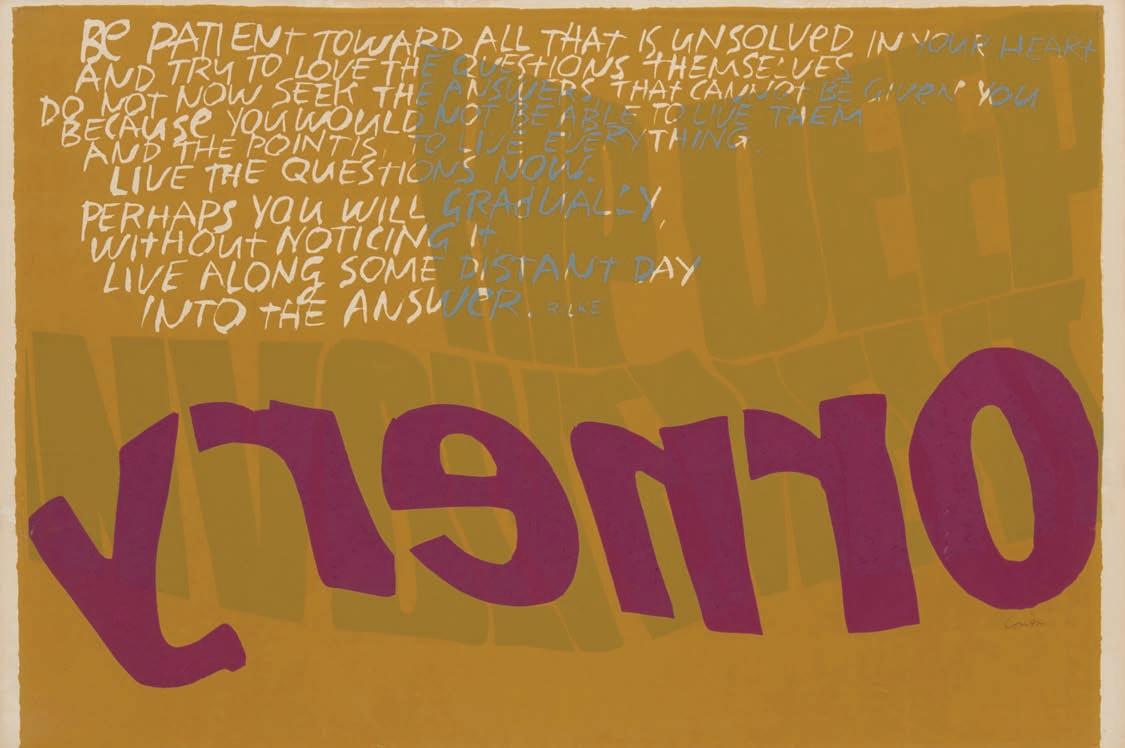 BE PATIENT TOWARD ALL THAT IS UNSOLVED IN YOUR HEART
AND TRY TO LOVE THE QUESTIONS THEMSELVES
DO NOT NOW SEEK THE ANSWERS THAT CANNOT BE GIVEN YOU
BECAUSE YOU WOULD NOT BE ABLE TO LIVE THEM
AND THE POINT IS, TO LIVE EVERYTHING.
LIVE THE QUESTIONS NOW.
PERHAPS YOU WILL GRADUALLY,
WITHOUT NOTICING IT,
LIVE ALONG SOME DISTANT DAY
INTO THE ANSWER. RILKE
DEEP
Ornery
Corita